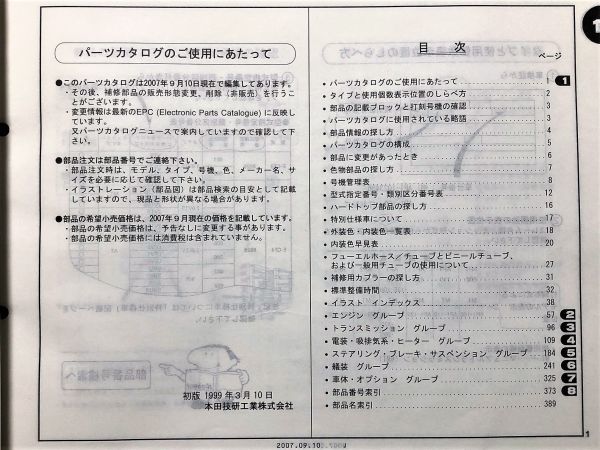 パーツカタログのご使用にあたって
●このパーツカタログは2007年9月10日現在で編集してあります。
・その後、補修部品の販売形態変更、削除（非販売）を行うこ
とがございます。
・変更情報は最新のEPC (Electronic Parts Catalogue) に反映し
ています。
又パーツカタログニュースで案内していますので確認して下
さい。
●部品注文は部品番号でご連絡下さい。
・部品注文時は、モデル、タイプ、号機、色、メーカー名、サ
イズを必要に応じて確認して下さい。
・イラストレーション（部品図）は部品検索の目安として記載
していますので、現品と形状が異なる場合があります。
●部品の希望小売価格は、2007年9月現在の価格を記載しています。
・部品の希望小売価格は、予告なしに変更する事があります。
・部品の希望小売価格には消費税は含まれていません。
初版 1999年3月10日
本田技研工業株式会社
目 次
ページ
・パーツカタログのご使用にあたって 1 1
・タイプと使用個数表示位置のしらべ方 2
・部品の記載ブロックと打刻号機の確認 3
・パーツカタログに使用されている略語 3
・部品情報の探し方 4
・パーツカタログの構成 5
・部品に変更があったとき 6
・色物部品の探し方 7
・号機管理表 8
・型式指定番号・類別区分番号表 12
・ハードトップ部品の探し方 16
・特別仕様車について 17
・外装色・内装色一覧表 18
・内装色早見表 20
・フューエルホース／チューブとビニールチューブ、
および一般用チューブの使用について 27
・補修用カプラーの探し方 31
・標準整備時間 32
・イラスト インデックス 38
・エンジン グループ 57 2
・トランスミッション グループ 96 3
・電装・吸排気系・ヒーター グループ 109 4
・ステアリング・ブレーキ・サスペンション グループ 184 5
・艤装 グループ 241 6
・車体・オプション グループ 325 7
・部品番号索引 373 8
・部品名索引 389
1
1
2007.09.10